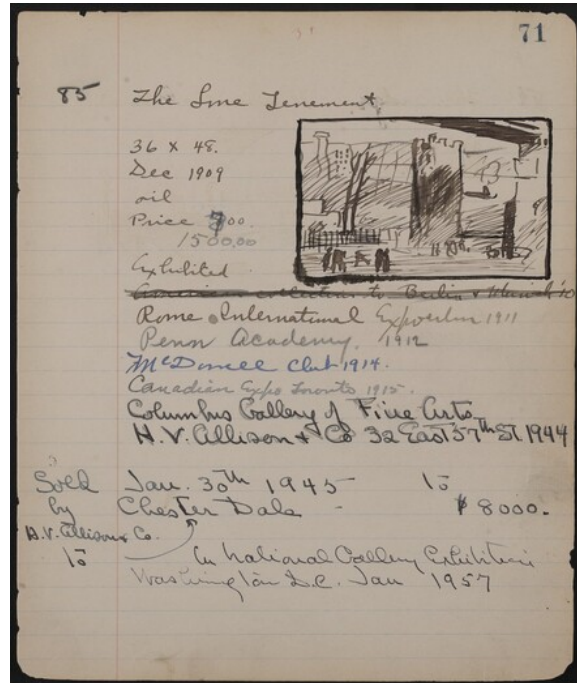 71
85 The Lone Tenement
36 x 48.
Dec 1909
oil
Price 00.
1500.00
Exhibited
American collection to Berlin & Munich '10
Rome International Exposition 1911
Penn Academy. 1912
McDowell Club 1914.
Canadian Expo Toronto 1915.
Columbus Gallery of Fine Arts.
H.V. Allison & Co 32 East 57th St. 1944
Sold Jan. 30th 1945 to
by Chester Dale - $8000.
H.V. Allison & Co.
to In National Gallery Exhibition
Washington D.C. Jan 1957